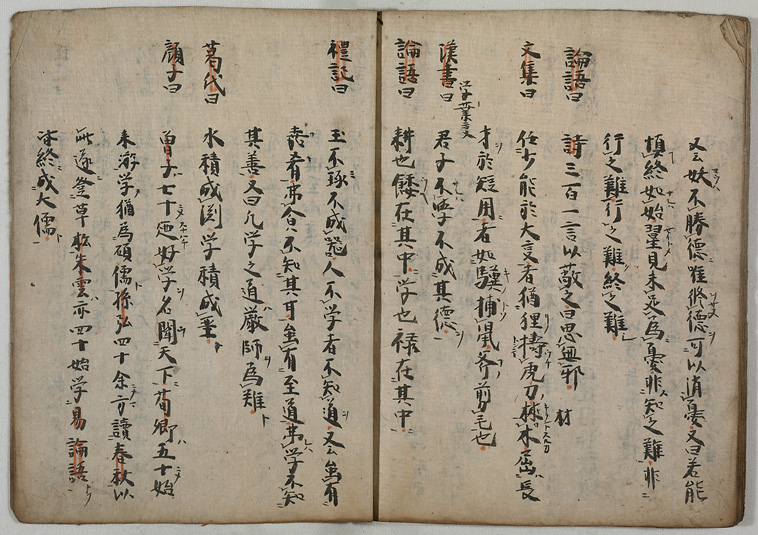 又云妖不勝德唯修德可以消憂又曰若能
慎終如始 見未 為憂非知之難非
行之難行之難終之難
論語曰 詩三百一言以蔽之曰思無邪
文集曰 任少能於大叓者猶狸搏虎刀 木 長
材
才於短用者如驥捕鼠斧剪毛也
漢書曰 君子不学不成其德
論語曰 耕也餧在其中学也禄在其中
禮記曰 玉不琢不成器人不学者不知道又云虽有
嘉肴弗食不知其旨虽有至道弗学不知
其善又曰凡学之道厳師為難
葛氏曰 水積成渕学積成聖
顔子曰 曽子七十廼好学名聞天下荀卿五十始
来游学猶為碩儒孫弘四十余方讀春秋以
此遂登 朱雲亦四十始学易論語
皆終成大儒